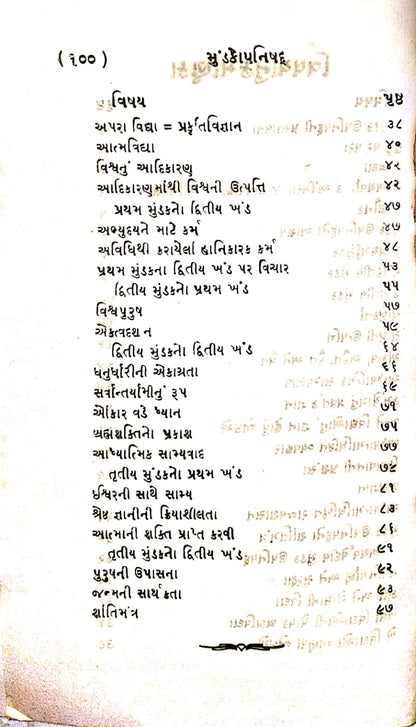 (૧૦૦) મુંડકોપનિષદ્
વિષય પૃષ્ઠ
અપરા વિદ્યા = પ્રકૃતિવિજ્ઞાન ૩૮
આત્મવિદ્યા ૪૦
વિશ્વનું આદિકારણ ૪૨
આદિકારણમાંથી વિશ્વની ઉત્પત્તિ ૪૨
પ્રથમ મુંડકનો દ્વિતીય ખંડ ૪૭
અભ્યુદયને માટે કર્મ ૪૭
અવિધિથી કરાયેલાં હાનિકારક કર્મ ૪૮
પ્રથમ મુંડકના દ્વિતીય ખંડ પર વિચાર ૫૩
દ્વિતીય મુંડકનો પ્રથમ ખંડ ૫૫
વિશ્વપુરુષ ૫૭
એકત્વદર્શન ૫૯
દ્વિતીય મુંડકનો દ્વિતીય ખંડ ૬૪
ધનુર્ધારીની એકાગ્રતા ૬૬
સર્વાન્તર્યામીનું રૂપ ૬૯
ઓંકાર વડે ધ્યાન ૭૧
બ્રહ્મશક્તિનો પ્રકાશ ૭૫
આધ્યાત્મિક સામ્યવાદ ૭૭
તૃતીય મુંડકનો પ્રથમ ખંડ ૭૯
ઈશ્વરની સાથે સામ્ય ૮૧
શ્રેષ્ઠ જ્ઞાનીની ક્રિયાશીલતા ૮૩
આત્માની શક્તિ પ્રાપ્ત કરવી ૮૬
તૃતીય મુંડકનો દ્વિતીય ખંડ ૯૧
પુરુષની ઉપાસના ૯૨
જન્મની સાર્થકતા ૯૩
શાંતિમંત્ર ૯૭